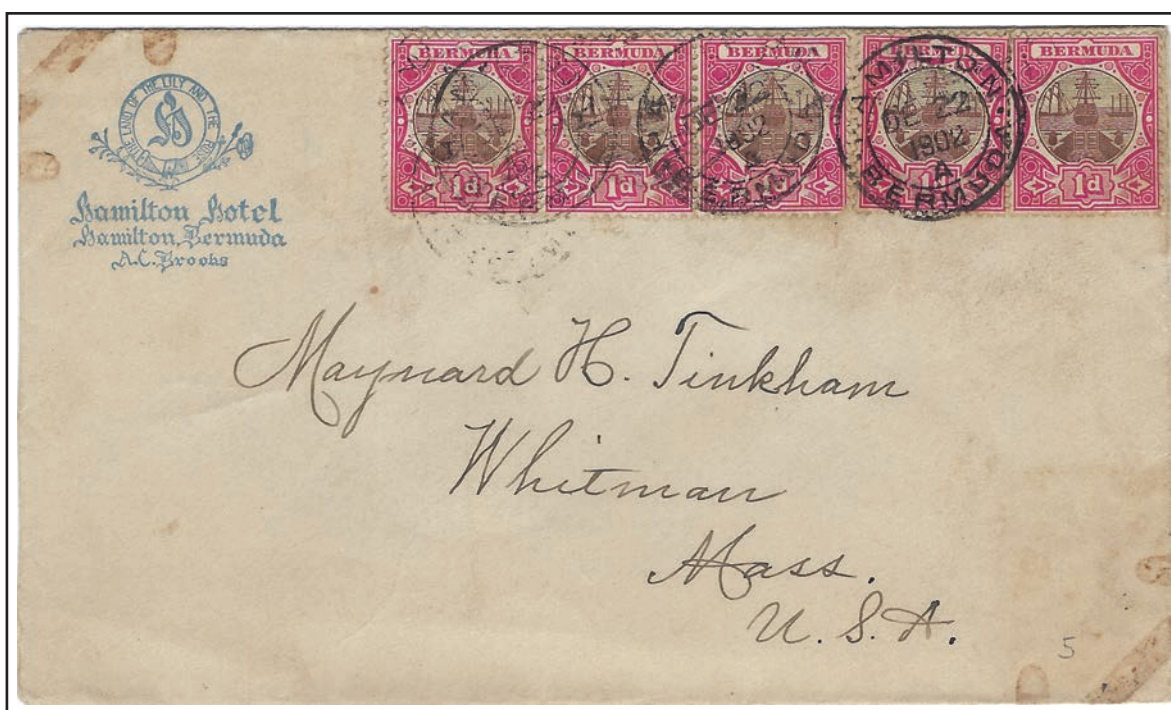 IN THE LAND OF THE LILY AND THE ROSE
Hamilton Hotel
Hamilton, Bermuda
A.C. Brooks
BERMUDA BERMUDA BERMUDA BERMUDA BERMUDA
1d 1d 1d 1d 1d
DE 22
1902
HAMILTON
DE 22
1902
A
BERMUDA
Maynard H. Tinkham
Whitman
Mass.
U. S. A.
5